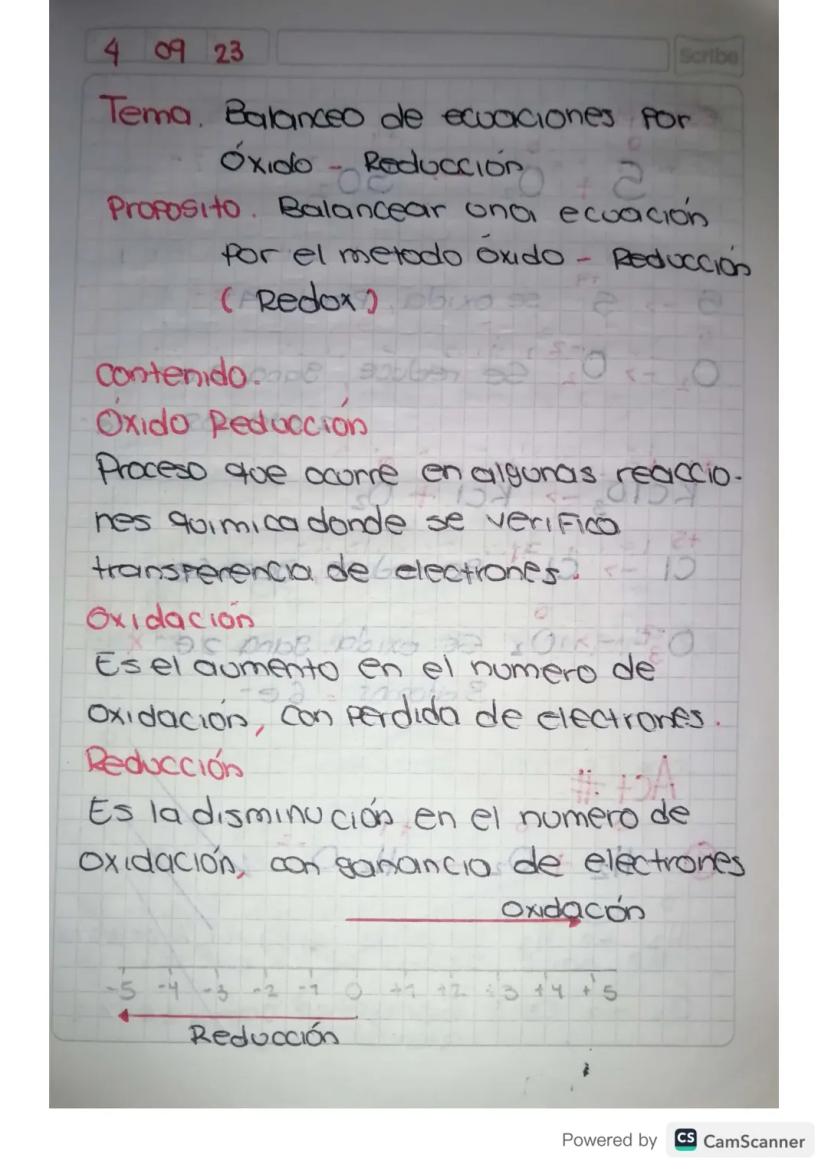 4 09 23
Scribe
Tema. Balanceo de ecuaciones por
Óxido - Reducción
Proposito. Balancear una ecuación
por el metodo óxido - Reducción
(Redox)
contenido.
Óxido Reducción
Proceso que ocurre en algunas reaccio-
nes quimica donde se verifica
transferencia de electrones.
Oxidación
Es el aumento en el numero de
oxidación, con perdida de electrones.
Reducción
Es la disminución en el numero de
oxidación, con ganancia de electrones
Oxidación
-5 -4 -3 -2 -1 0 +1 +2 +3 +4 +5
Reducción
Powered by CS CamScanner